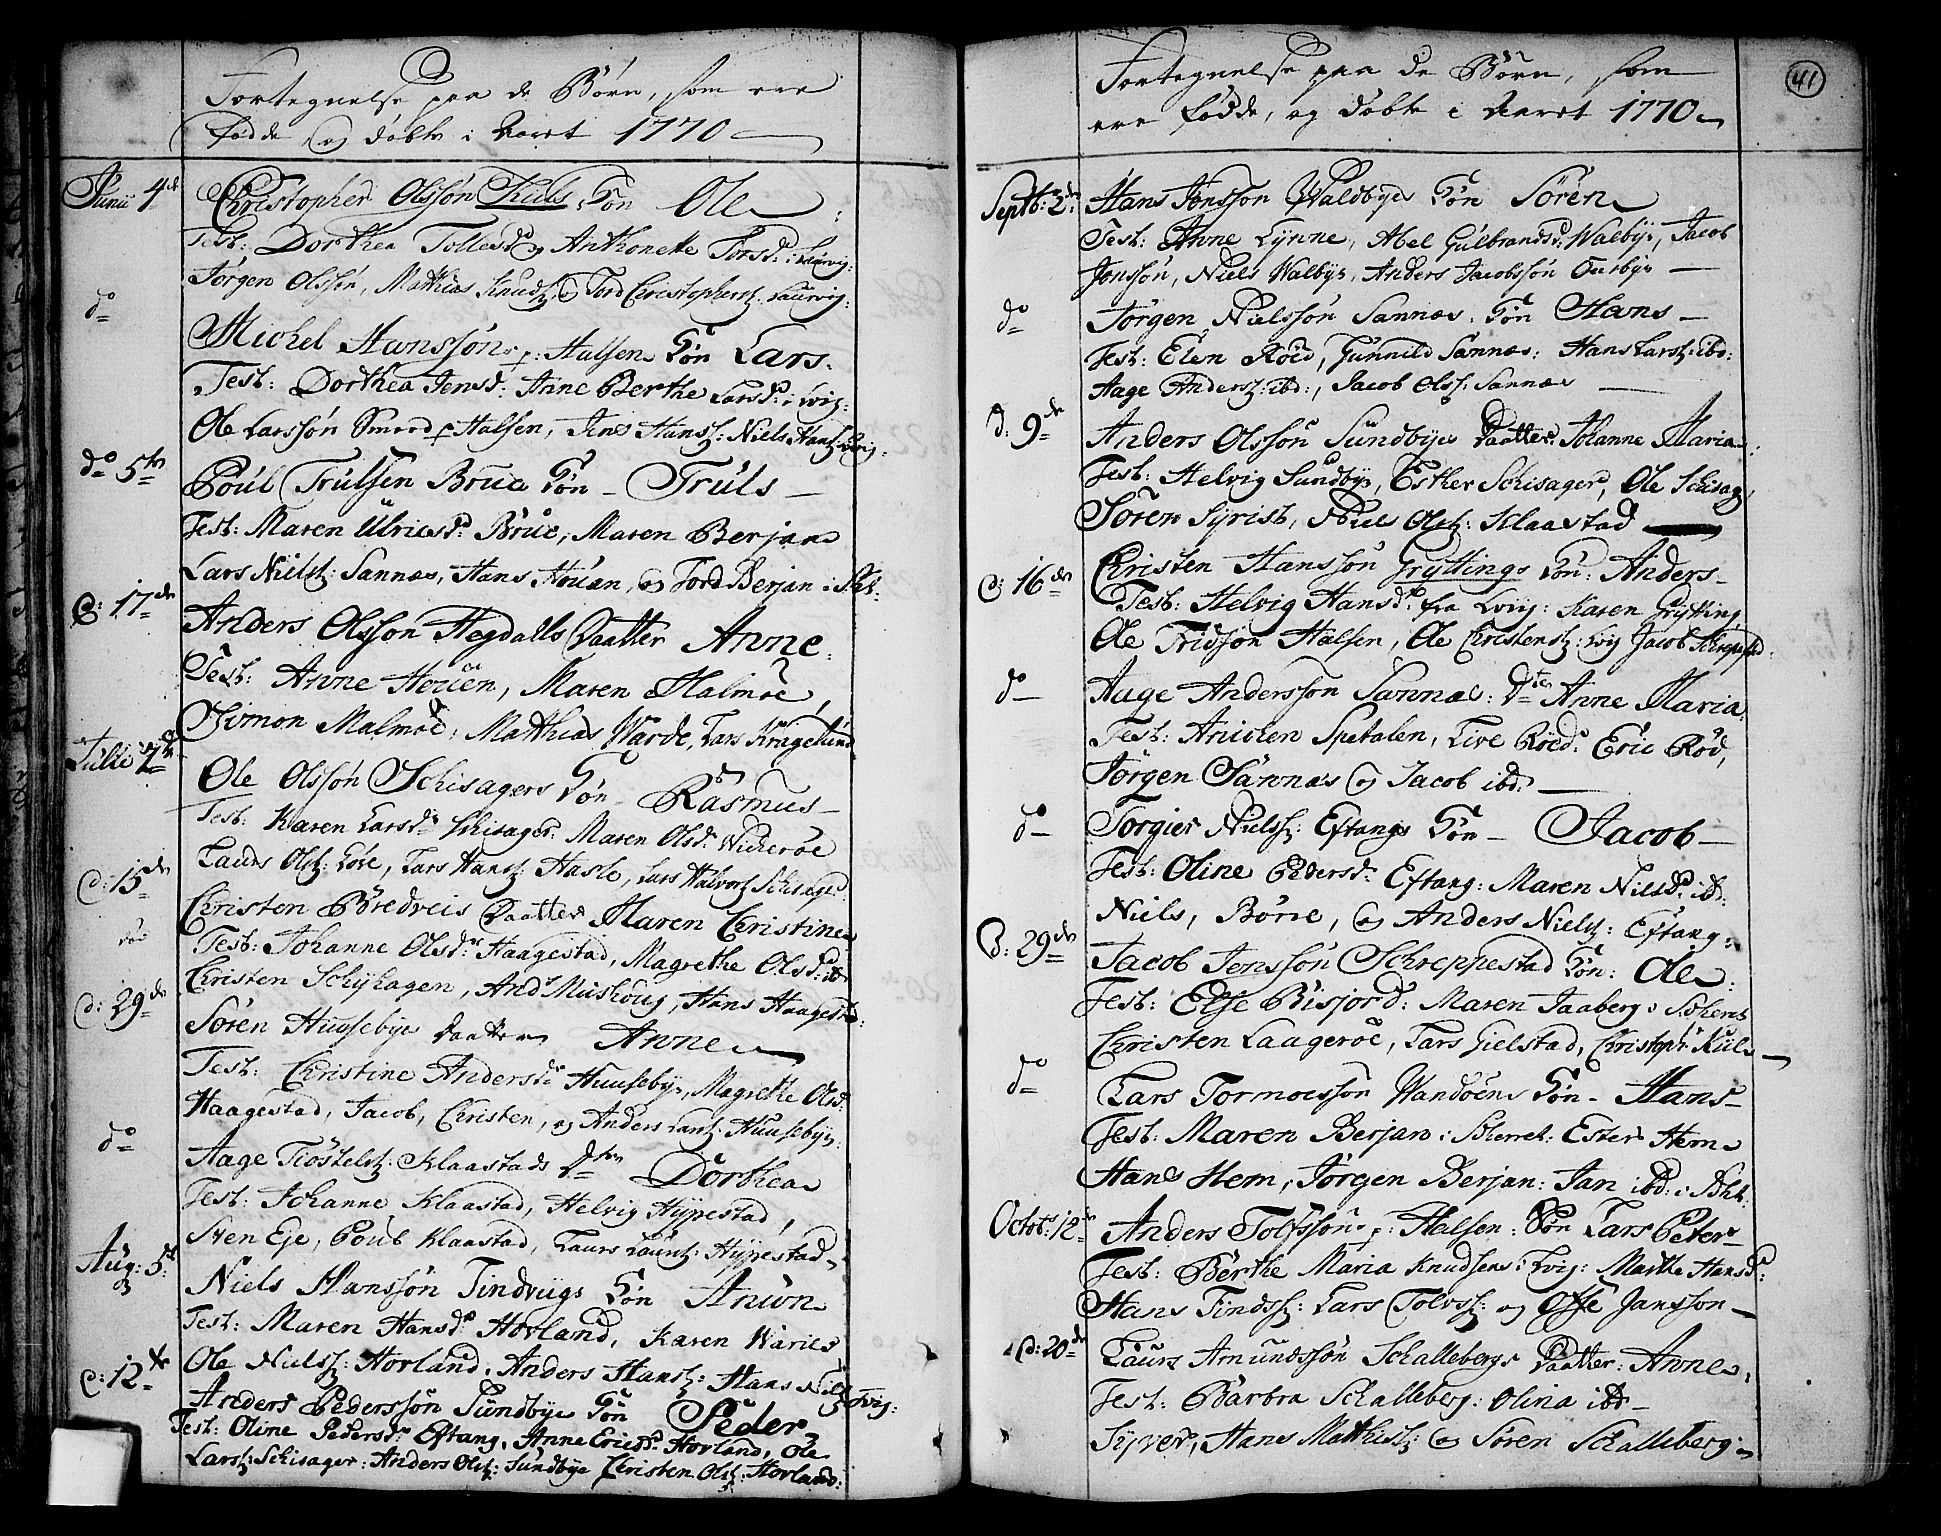 Fortegnelse paa de Børn, som ere
fødde og døbte i Aaret 1770
Junii 4de Christopher Olssøn Skiels Søn Ole
Test: Dorthea Tollesdr og Anthonette Torsdr: i Laurvig:
Jørgen Olssøn, Mathias Knudsz, og Tord Christophersz. Laurvig:
do Michel Hanssøn p: Halsen Søn Lars.
Test: Dorthea Jensd: Anne Berthe Larsdr: i Lvig:
Ole Larssøn Smed p Halsen, Jens Hansz: Niels Hansz Lvig:
do 5te Poul Trulsen Brue Søn - Truls -
Test: Maren Ulricsdr: Brue, Maren Berjan
Lars Nielsz: Sannæs, Hans Houan, og Tord Berjan i
d: 17de Anders Olsson Hegdalls Daatter Anne.
Test: Anne Houen, Maren Malmøe,
Simon Malmøe, Matthias Warde, Lars Krageslund
Julii Ole Olssøn Schisagers Søn - Rasmus -
Test: Karen Larsdr Schisager: Maren Olsdr Widerøe
Laurs Olsz: Løve, Lars Hansz Hasle, Lars Halvorsz Schisager
d: 15de Christen Bøedreis Daatter Maren Christine
Test: Johanne Olsdr: Haagestad, Magrethe Olsdr: ibd
Christen Schyhagen, Andrs Muskoug, Hans Haagestd:
d: 29de Søren Huusebye Daatter Anne
Test: Christine Andersdr Huusebye, Magrethe Olsdr:
Haagestad, Jacob, Christen, og Anders Larsz: Huusebye:
do Aage Tiøstelsz: Klaastads Dtter Dorthea
Test: Johanne Klaastad, Helvig Hyppestad,
Sven Eje, Poul Klaastad, Laurs Laursz: Hyppestad.
Aug: 5te Niels Hanssøn Tindvigs Søn Anun
Test: Maren Hansdr Hovland, Karen Waries
Ole Nielsz: Hovland, Anders Hansz: Hans Nielsz Lvig:
d: 12te Anders Pederssøn Sundbye Søn Peder
Test: Oline Pedersdr Eftang, Anne Ericsdr. Hovland, Ole
Larsz: Schisager: Anders Olsz: Sundbye Christen Olsz: Hovland:
41
Fortegnelse paa de Børn, som
ere fødde, og døbte i Aaret 1770
Septb: 2den Hans Jonssøn Waldbye Søn Søren
Test: Anne Lynne, Abel Gulbrandsdr: Walbye, Jacob
Jonssøn, Niels Walbye, Anders Jacobssøn Ousbye -
do Jørgen Nielssøn Sannæs: Søn Hans -
Test: Elen Røed, Gunnild Sannæs: Hans Larsz: ibd:
Aage Andersz: ibd:, Jacob Olsz: Sannæs -
d: 9de Anders Olssøn Sundbye Daatter Johanne Maria
Test: Helvig Sundbye, Esther Schisager, Ole Schisag:
Søren Syrist, Niels Olsz: Klaastad
d: 16de Christen Hanssøn Gryttings Søn: Anders -
Test: Helvig Hansdr: fra Lvig: Karen Grytting,
Ole Fridsøn Halsen, Ole Christensz: Lvig Jacob Schrepestad:
do Aage Anderssøn Sannæs: Dter Anne Maria
Test: Anichen Spetalen, Live Røed: Eric Rød,
Jørgen Sannæs og Jacob ibd: -
do Torgier Nielsz: Eftangs Søn - Jacob -
Test: Oline Pedersdr: Eftang: Maren Nielsdr: ibd:
Niels, Børre, og Anders Nielsz: Eftang:
d: 29de Jacob Jenssøn Schreppestad Søn: Ole
Test: Else Bisjord: Maren Jaaberg:
Christen Laagerøe, Lars Gielstad, Christoph: Kiil
do Lars Tormoessøn Wandøens Søn - Hans -
Test: Maren Berjan: Ester Hem
Hans Hem, Jørgen Berjan: Jan ibd: i
Octob: 12te Anders Tolfssøn p: Halsen: Søn Lars Peter -
Test: Berthe Maria Knudsen i Lvig: Marthe Hansdr:
Hans Findsz: Lars Tolvsz: og Offe Janssøn -
d: 20de Laurs Amundssøn Schallebergs Daatter: Anne
Test: Barbra Schalleberg: Olina ibd -
Syver, Hans Mathisz: og Søren Schalleberg: